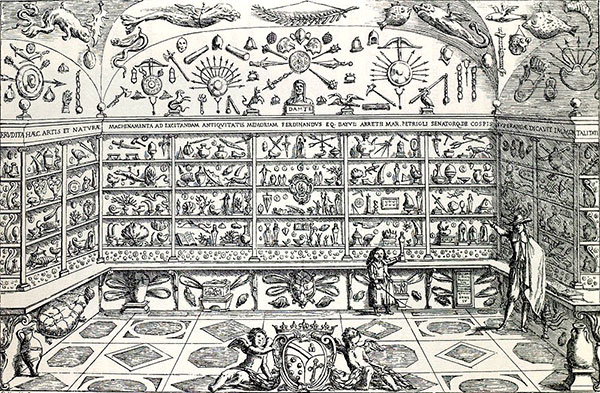 DANTE
ERUDITA HÆC ARTIS ET NATURÆ MACHINAMENTA AD EXCITANDAM ANTIQVITATIS MEMORIAM FERDINANDVS EQ. BAYVL ARRETII MAR. PETRIOLI SENATORQ. DE COSPIS